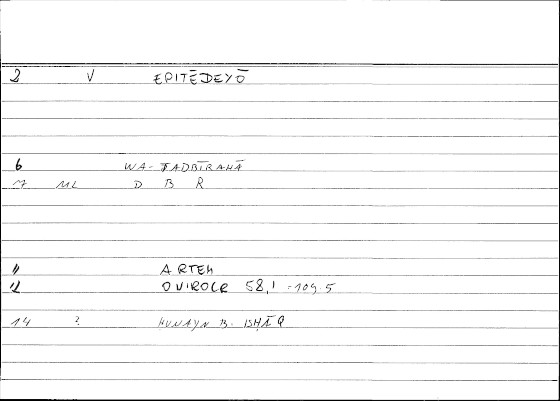 2 V EPITĒDEYŌ
6 WA-TADBĪRAHĀ
7 ML D B R
11 ARTEM
12 OVIROCR 58,1 = 109.5
14 ? HUNAYN B. ISḤĀQ